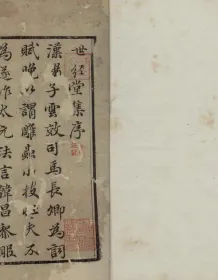 世經堂集序
漢楊子雲效司馬長卿為詞
賦晚以謂雕蟲小技壯夫不
為遂作太元法言韓昌黎眼